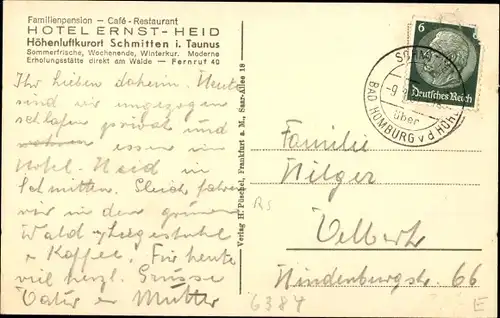 Familienpension — Café - Restaurant
HOTEL ERNST-HEID
Höhenluftkurort Schmitten i. Taunus
Sommerfrische, Wochenende, Winterkur. Moderne
Erholungsstätte direkt am Walde — Fernruf 40
Ihr Lieben daheim. Heute
sind wir umgezogen
schlafen privat und
essen im
Hotel Heid in
Schmitten. Gleich fahren
wir in den grünen
Wald z. Liegestuhl
+ Kaffee. Für heute
viel herzl. Grüsse
Vater u Mutter
Verlag H. Püschel, Frankfurt a. M., Saar-Allee 18
6
Deutsches Reich
über
BAD HOMBURG v d HÖHE
Familie
Hilger
Velbert
Hindenburgstr. 66
RS
6384
E